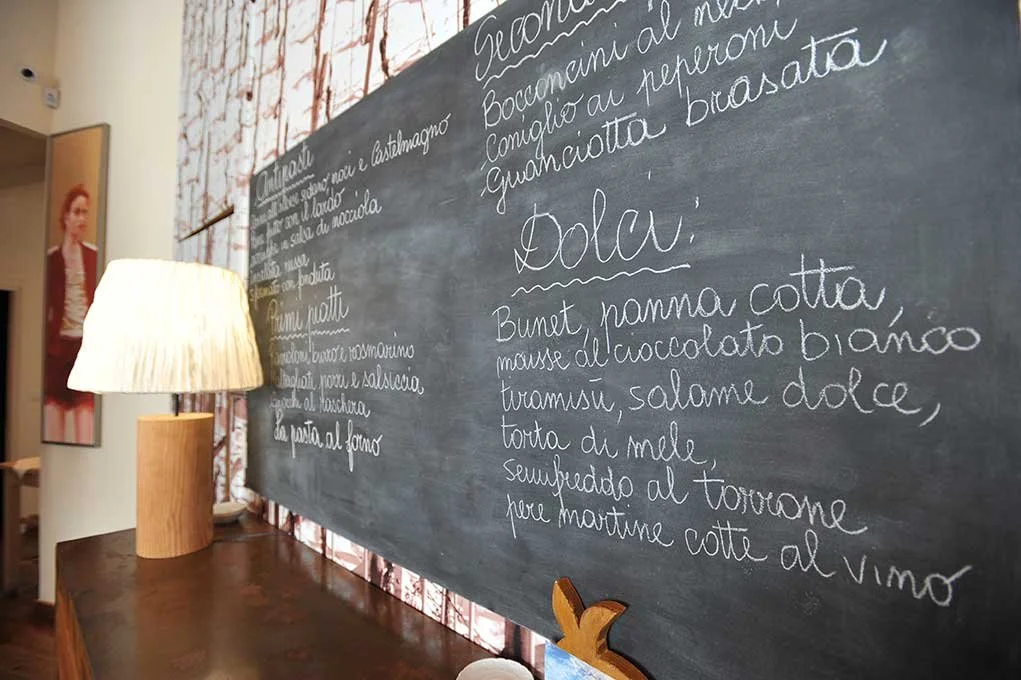 Antipasti
sedano noci e Castelmagno
con il lardo
in salsa di nocciola
russa
con fonduta
Primi piatti
burro e rosmarino
porri e salsiccia
al Raschera
La pasta al forno
Secondi
Bocconcini al
Coniglio ai peperoni
Guanciotta brasata
Dolci:
Bunet, panna cotta,
mousse al cioccolato bianco
tiramisù, salame dolce,
torta di mele,
semifreddo al torrone
pere martine cotte al vino